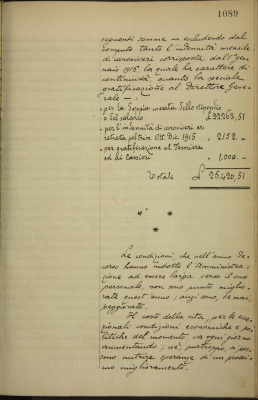 1089
seguenti somme — escludendo dal
computo tanto l'indennità mensile
di caroviveri corrisposta dall'gen-
naio 1916, la quale ha carattere di
continuità, quanto la speciale
gratificazione al Direttore Gene-
rale — :
- per la doppia mesata dello stipendio
o del salario £ 22268,51
- per l'indennità di caroviveri
Ott. Dic. 1915 " 2152. —
- per gratificazione al Tesoriere
ed ai Cassieri " 1.000. —
Totale £ 25.420,51
* * *
Le condizioni che nell'anno de-
corso hanno indotto l'Amministra-
zione ad essere larga verso il suo
personale, non sono punto miglio-
rate quest'anno; anzi sono, se mai,
peggiorate.
Il costo della vita per le ecce-
zionali condizioni economiche e po-
litiche del momento va ogni giorno
aumentando; nè, purtroppo, si pos-
sono nutrire speranze di un prossi-
mo miglioramento.